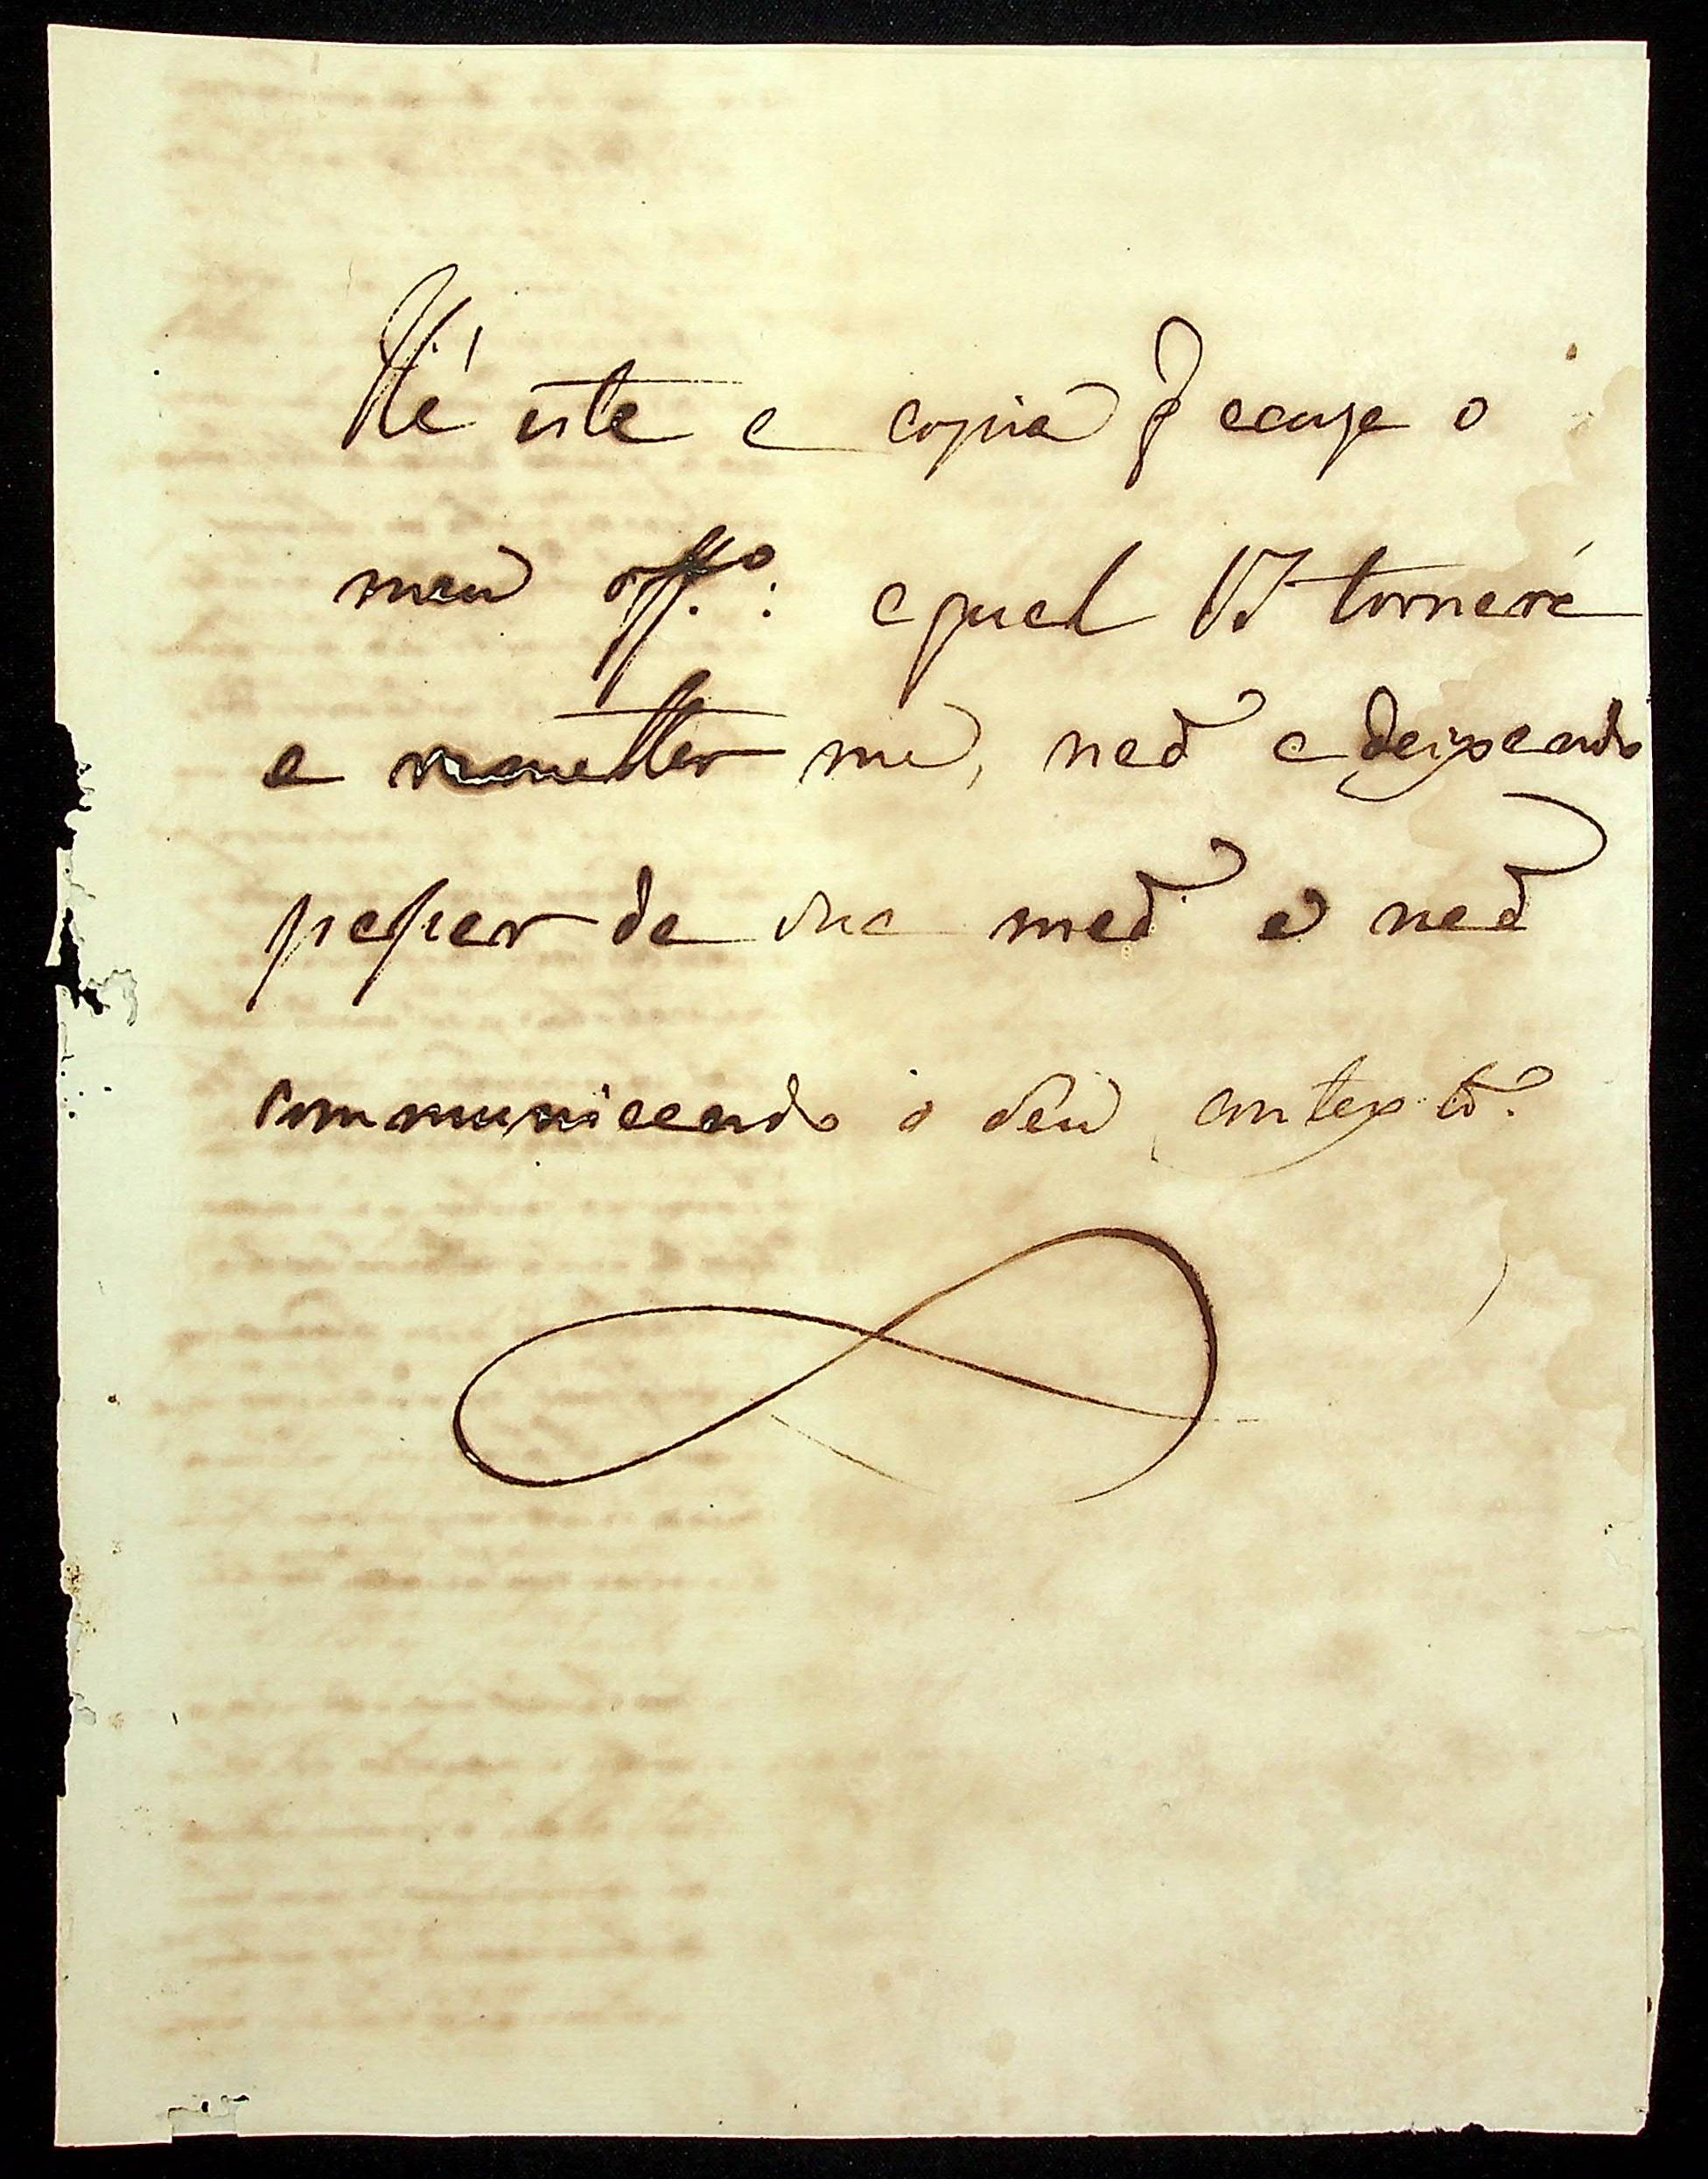 Hé esta a copia q̃ acuza o
meu off.º: a qual VS tornará
a remetter me, naõ a deixando
passar da sua maõ e naõ
communicando o seu contexto.